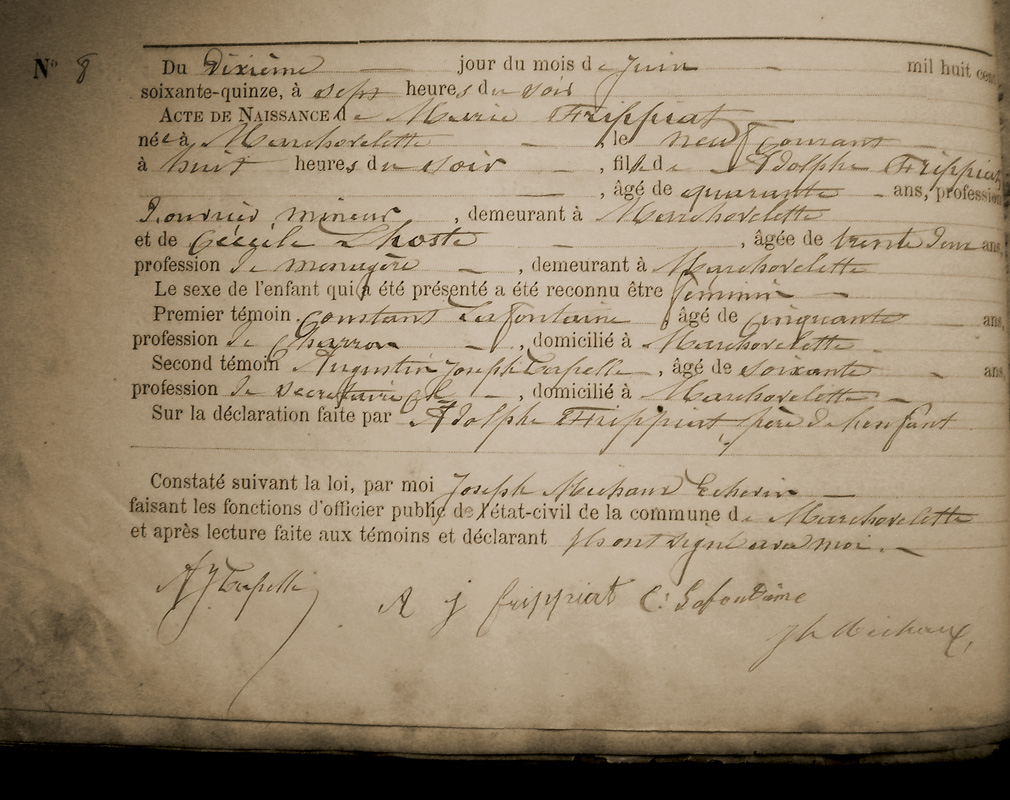 N° 8 Du Dixième jour du mois de Juin mil huit cent
soixante-quinze, à sept heures du soir
ACTE DE NAISSANCE de Marie Frippiat
née à Marchovelette, le neuf courant
à huit heures du soir, fille de Adolphe Frippiat
, âgé de quarante ans, profession
D'ouvrier mineur, demeurant à Marchovelette
et de Cécile Lhoste, âgée de trente Deux ans
profession de menagère, demeurant à Marchovelette
Le sexe de l'enfant qui a été présenté a été reconnu être féminin
Premier témoin Constant Lafontaine, âgé de Cinquante ans,
profession de Charron, domicilié à Marchovelette
Second témoin Augustin Joseph Capelle, âgé de soixante ans
profession de secretaire Cl, domicilié à Marchovelette
Sur la déclaration faite par Adolphe Frippiat, père de l'enfant
Constaté suivant la loi, par moi Joseph Michaux Echevin
faisant les fonctions d'officier public de l'état-civil de la commune de Marchovelette
et après lecture faite aux témoins et déclarant Ils ont signé avec moi.
A J Capelle A j frippiat C. Lafontaine
Jh Michaux,